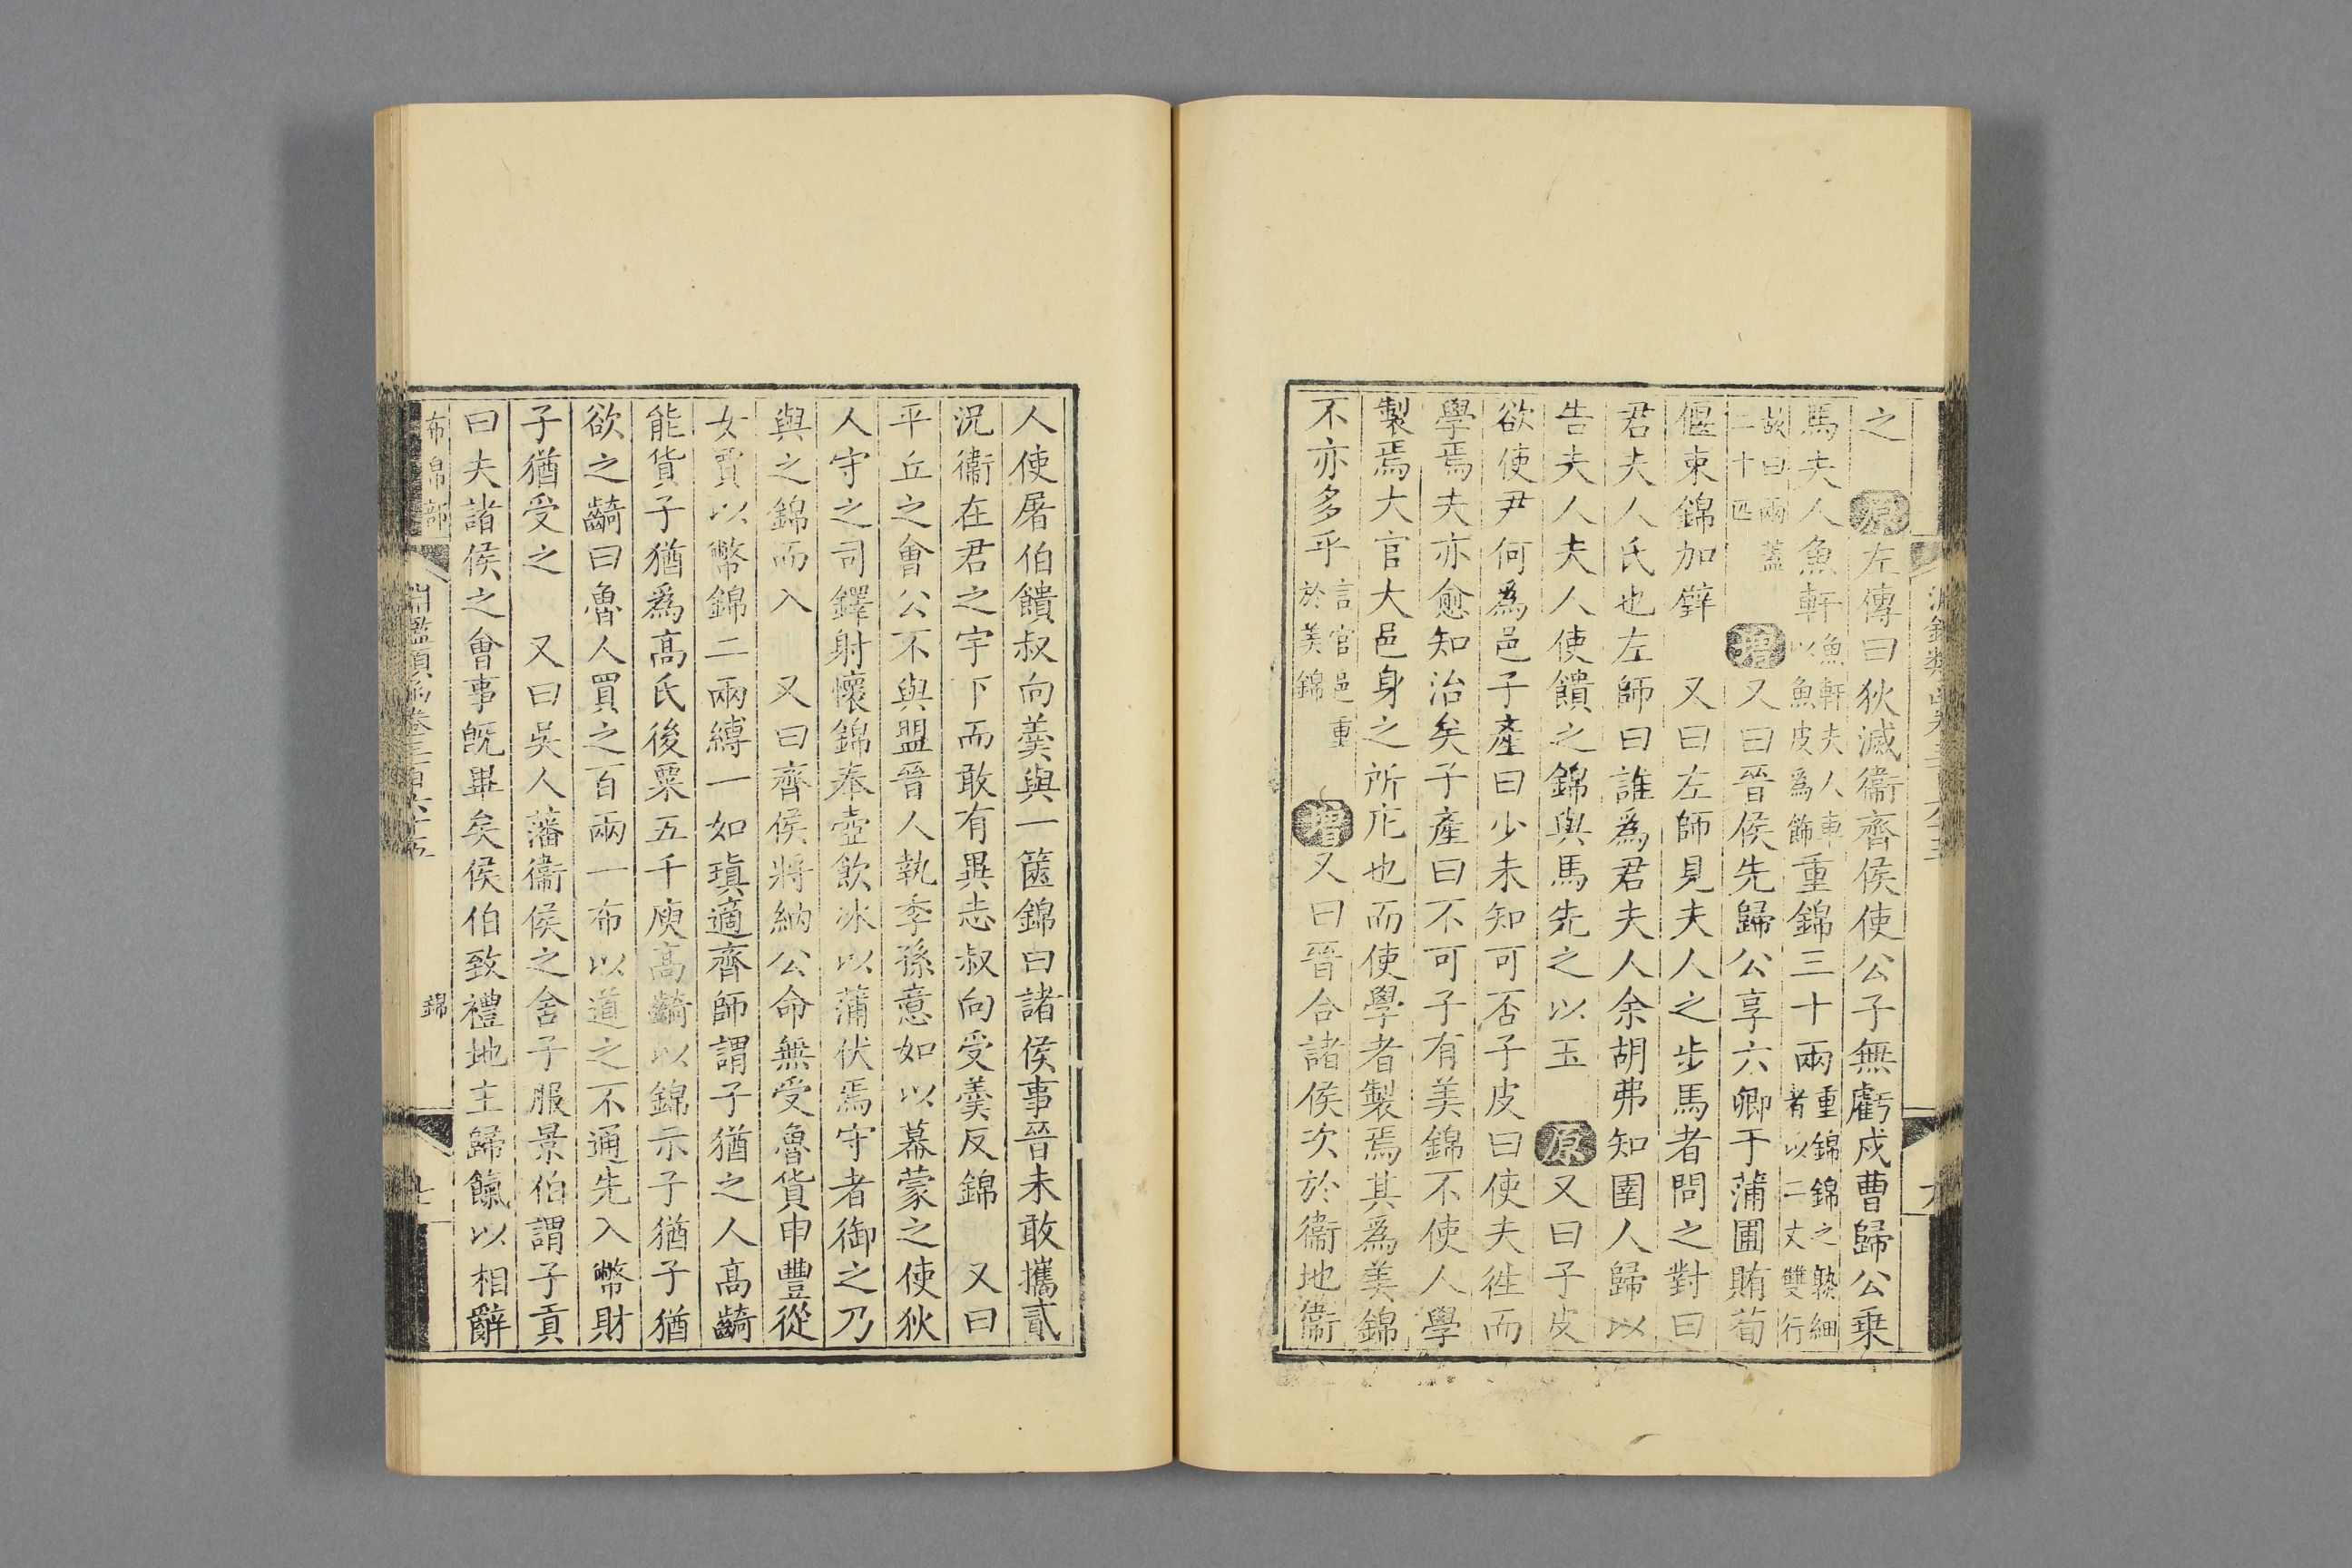 之　原左傳曰狄滅衞齊侯使公子無虧戍曹歸公乗
馬夫人魚軒魚軒夫人車以魚皮爲飾重錦三十兩重錦錦之熟細者以二丈雙行
故曰兩蓋二十匹　增又曰晉侯先歸公享六卿于蒲圃賄荀
偃束錦加璧　又曰左師見夫人之步馬者問之對曰
君夫人氏也左師曰誰爲君夫人余胡弗知圉人歸以
告夫人夫人使饋之錦與馬先之以玉　原又曰子皮
欲使尹何爲邑子產曰少未知可否子皮曰使夫徃而
學焉夫亦愈知治矣子產曰不可子有美錦不使人學
製焉大官大邑身之所庇也而使學者製焉其爲美錦
不亦多乎言官邑重於美錦　增又曰晉合諸侯次於衞地衞
人使屠伯饋叔向羮與一篋錦曰諸侯事晉未敢攜貳
況衞在君之宇下而敢有異志叔向受羮反錦　又曰
平丘之會公不與盟晉人執季孫意如以幕蒙之使狄
人守之司鐸射懷錦奉壺飲冰以蒲伏焉守者御之乃
與之錦而入　又曰齊侯將納公命無受魯貨申豐從
女賈以幣錦二兩縛一如瑱適齊師謂子猶之人高齮
能貨子猶爲高氏後粟五千庾高齮以錦示子猶子猶
欲之齮曰魯人買之百兩一布以道之不通先入幣財
子猶受之　又曰吳人藩衞侯之舍子服景伯謂子貢
曰夫諸侯之會事旣畢矣侯伯致禮地主歸餼以相辭
布帛部　淵鑑類函卷三百六十五　錦